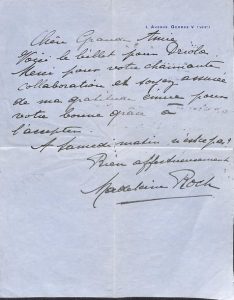 1, AVENUE GEORGE V (VIIIE)
Chère Grande Amie
Voici le billet pour Driola
Merci pour votre charmante
collaboration et soyez assurée
de ma gratitude émue pour
votre bonne grâce à
l'accepter.
A samedi matin n'est-ce pas?
Bien affectueusement
Madeleine Roch